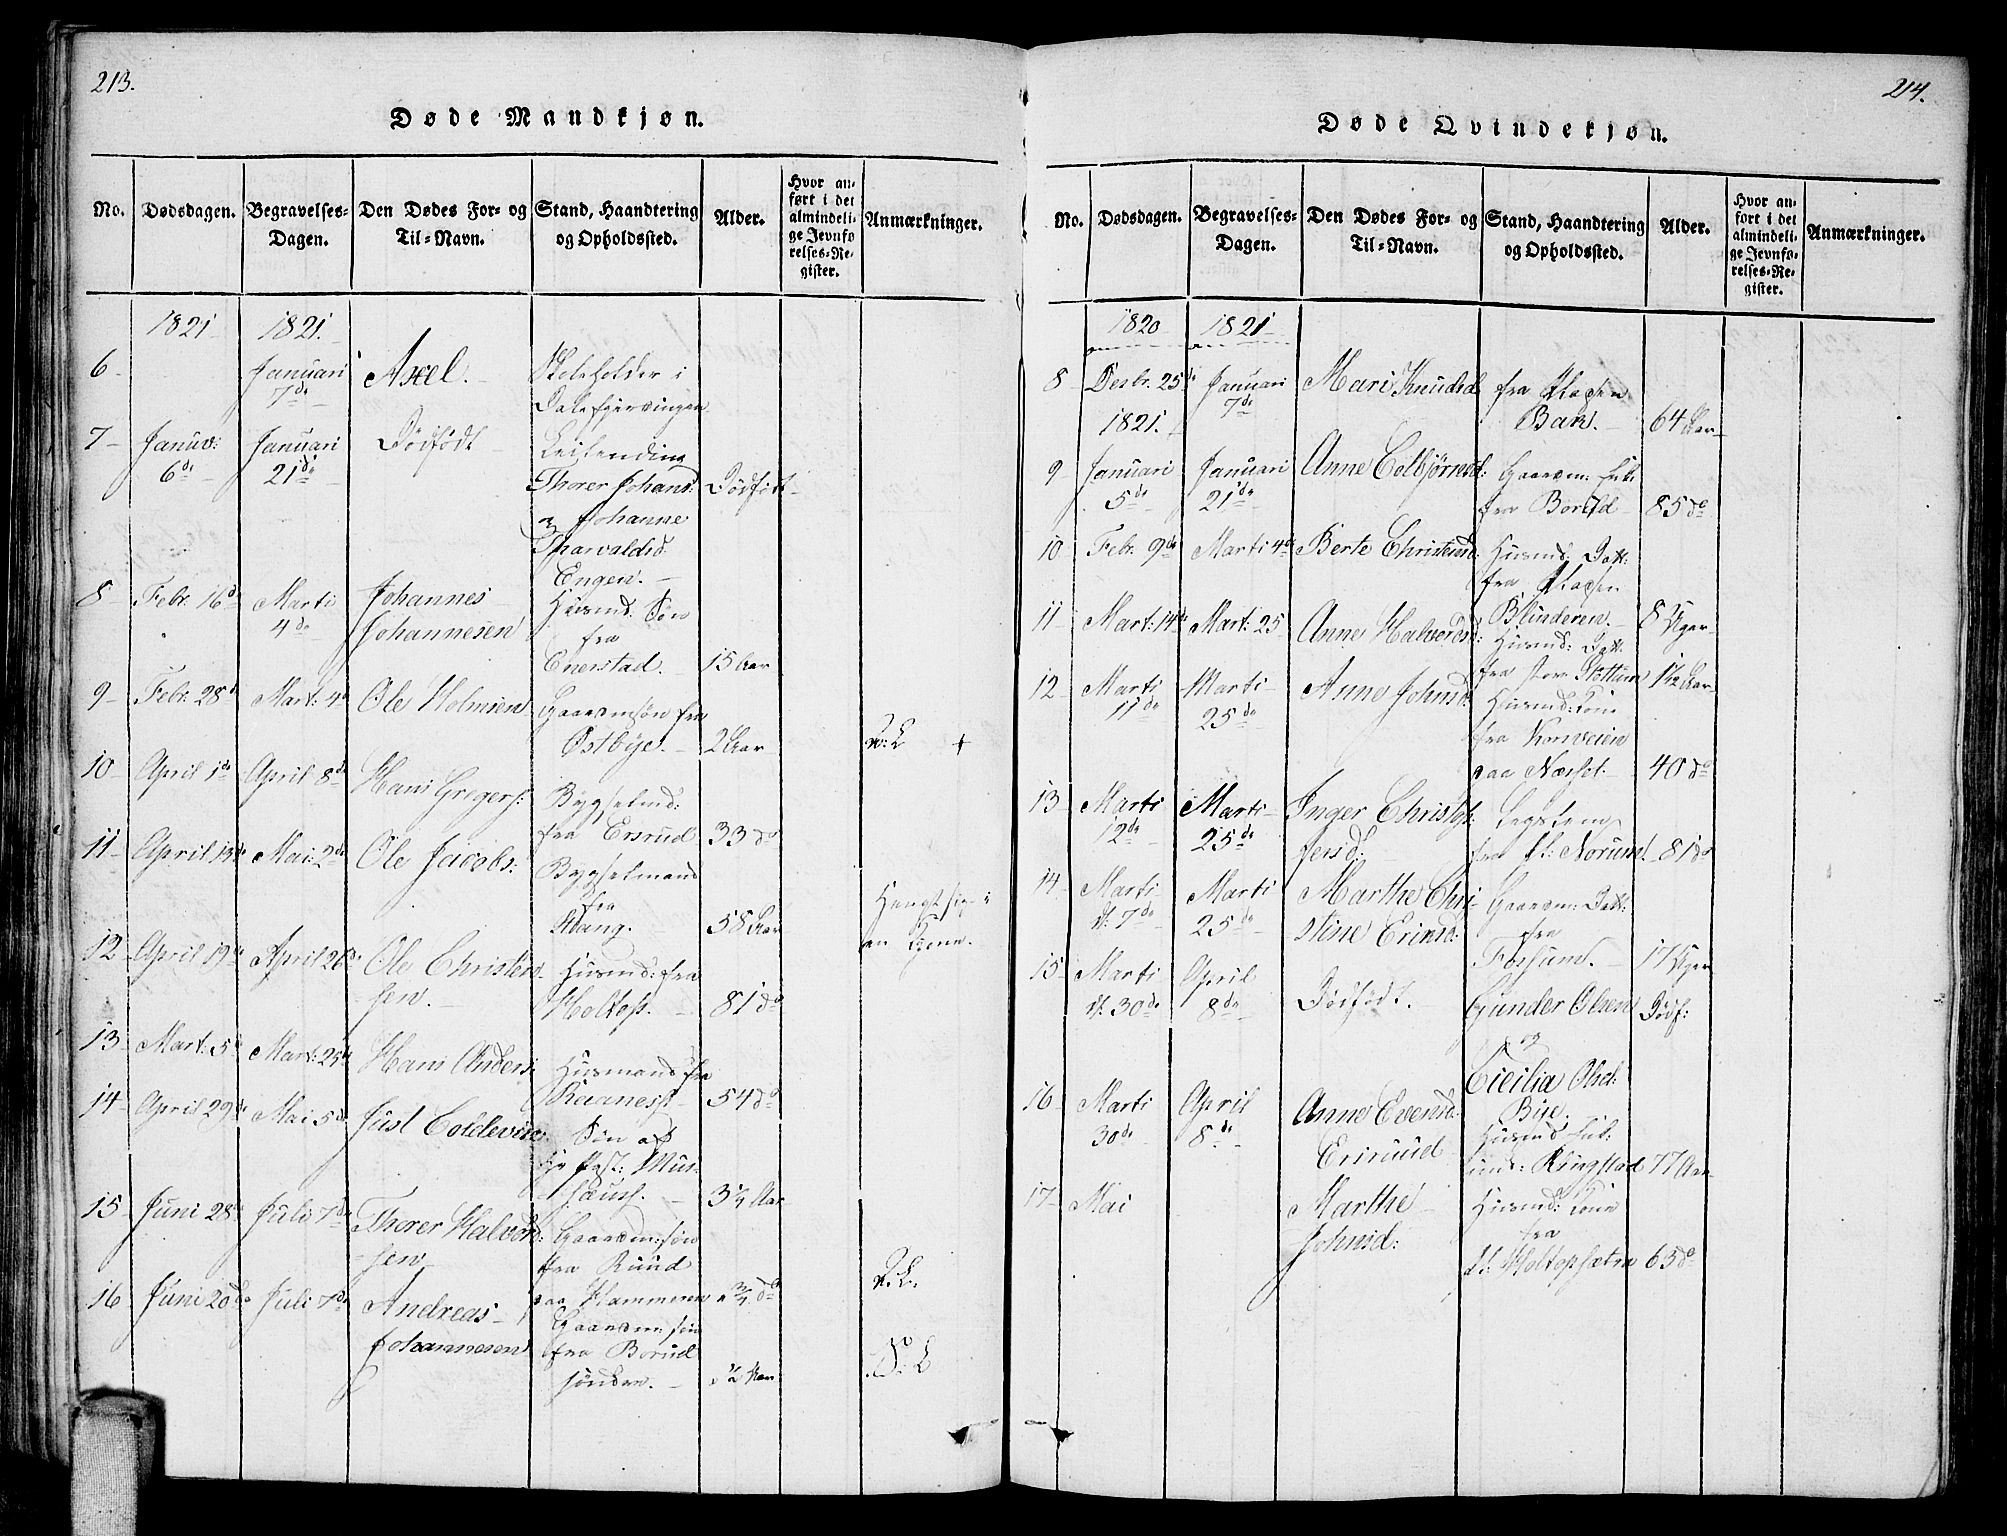 213.
Døde Mandkjøn.
No. Dødsdagen. Begravelses-Dagen. Den Dødes For- og Til-Navn. Stand, Haandtering og Opholdssted. Alder. Hvor anført i det almindelige Jevnførelses-Register. Anmærkninger.
1821 1821.
6 Januari 7de Axel. Skoleholder i
7 Januar: 6de Januari 21de Dödfödt Leilending
Thorer Johans: Dödfödt
& Johanne
Tharvaldsd.
Engen.
8 Febr. 16de Marti 4de Johannes Johannesen Husmd: Sön
fra
Enerstad. 15 Aar
9 Febr. 28de Mart: 4de Ole Holmsen Gaardmsön fra
Østbye. 2 Aar
10 April 1de April 8de Hans Gregers: Bygselmd:
fra Ersrud 33 do
11 April 13de Mai: 2de Ole Jacobs: Bygselmand
fra
Stang. 58 Aar
12 April 19de April 26de Ole Christensen. Husmd: fra
Holtop. 81 do
13 Mart: 5de Mart: 25de Hans Anders: Husmand fra
54 do
14 April 29de Mai 5de Just Coldevin Sön af
Hr Past: Mus-
3¼ Aar
15 Juni 28de Juli 7de Thorer Halvorsen Gaardm: sön
fra Ruud
¾ do
16 Juni 20de Juli 7de Andreas Johannesen Gaardm: sön
fra Borud
söndre. ½ Aar
214.
Døde Qvindekjøn.
No. Dødsdagen. Begravelses-Dagen. Den Dødes For- og Til-Navn. Stand, Haandtering og Opholdssted. Alder. Hvor anført i det almindelige Jevnførelses-Register. Anmærkninger.
1820 1821
8 Desbr. 25de Januari 7de Mari Knudsd fra
Bak. 64 Aar
1821.
9 Januari 5de Januari 21de Anne Colbjørnsd: Gaardm: Enke
fra Borud 85 do
10 Febr. 9de Marti 4de Berte Christensd: Husmd: Datt:
fra
Blinderen. 8 Uger
11 Mart: 14de Mart: 25 Anne Halvorsd: Husmd: Datt:
fra store 1½ Aar
12 Marti 11de Marti 25de Anne Johnsd: Husmd: Kone
fra Kornveien
paa Næshol. 40 do
13 Marti 12de Marti 25de Inger Christophersd: Legslem
fra Norum 81 do
14 Marti d: 7de Marti 25de Marthe Christine Ericsd: Gaardm: Datt:
fra
Fossum. 17 Uger
15 Marti d: 30de April 8de Dödfödt. Gunder Olsen Dödf:
og
Cicilia Olsd:
Bye.
16 Marti 30de April 8de Anne Evensd. Ersruud Husmd Enk:
Ringstad 77 Aar
17 Mai Marthe Johnsd: Husmd: Kone
fra
63 do